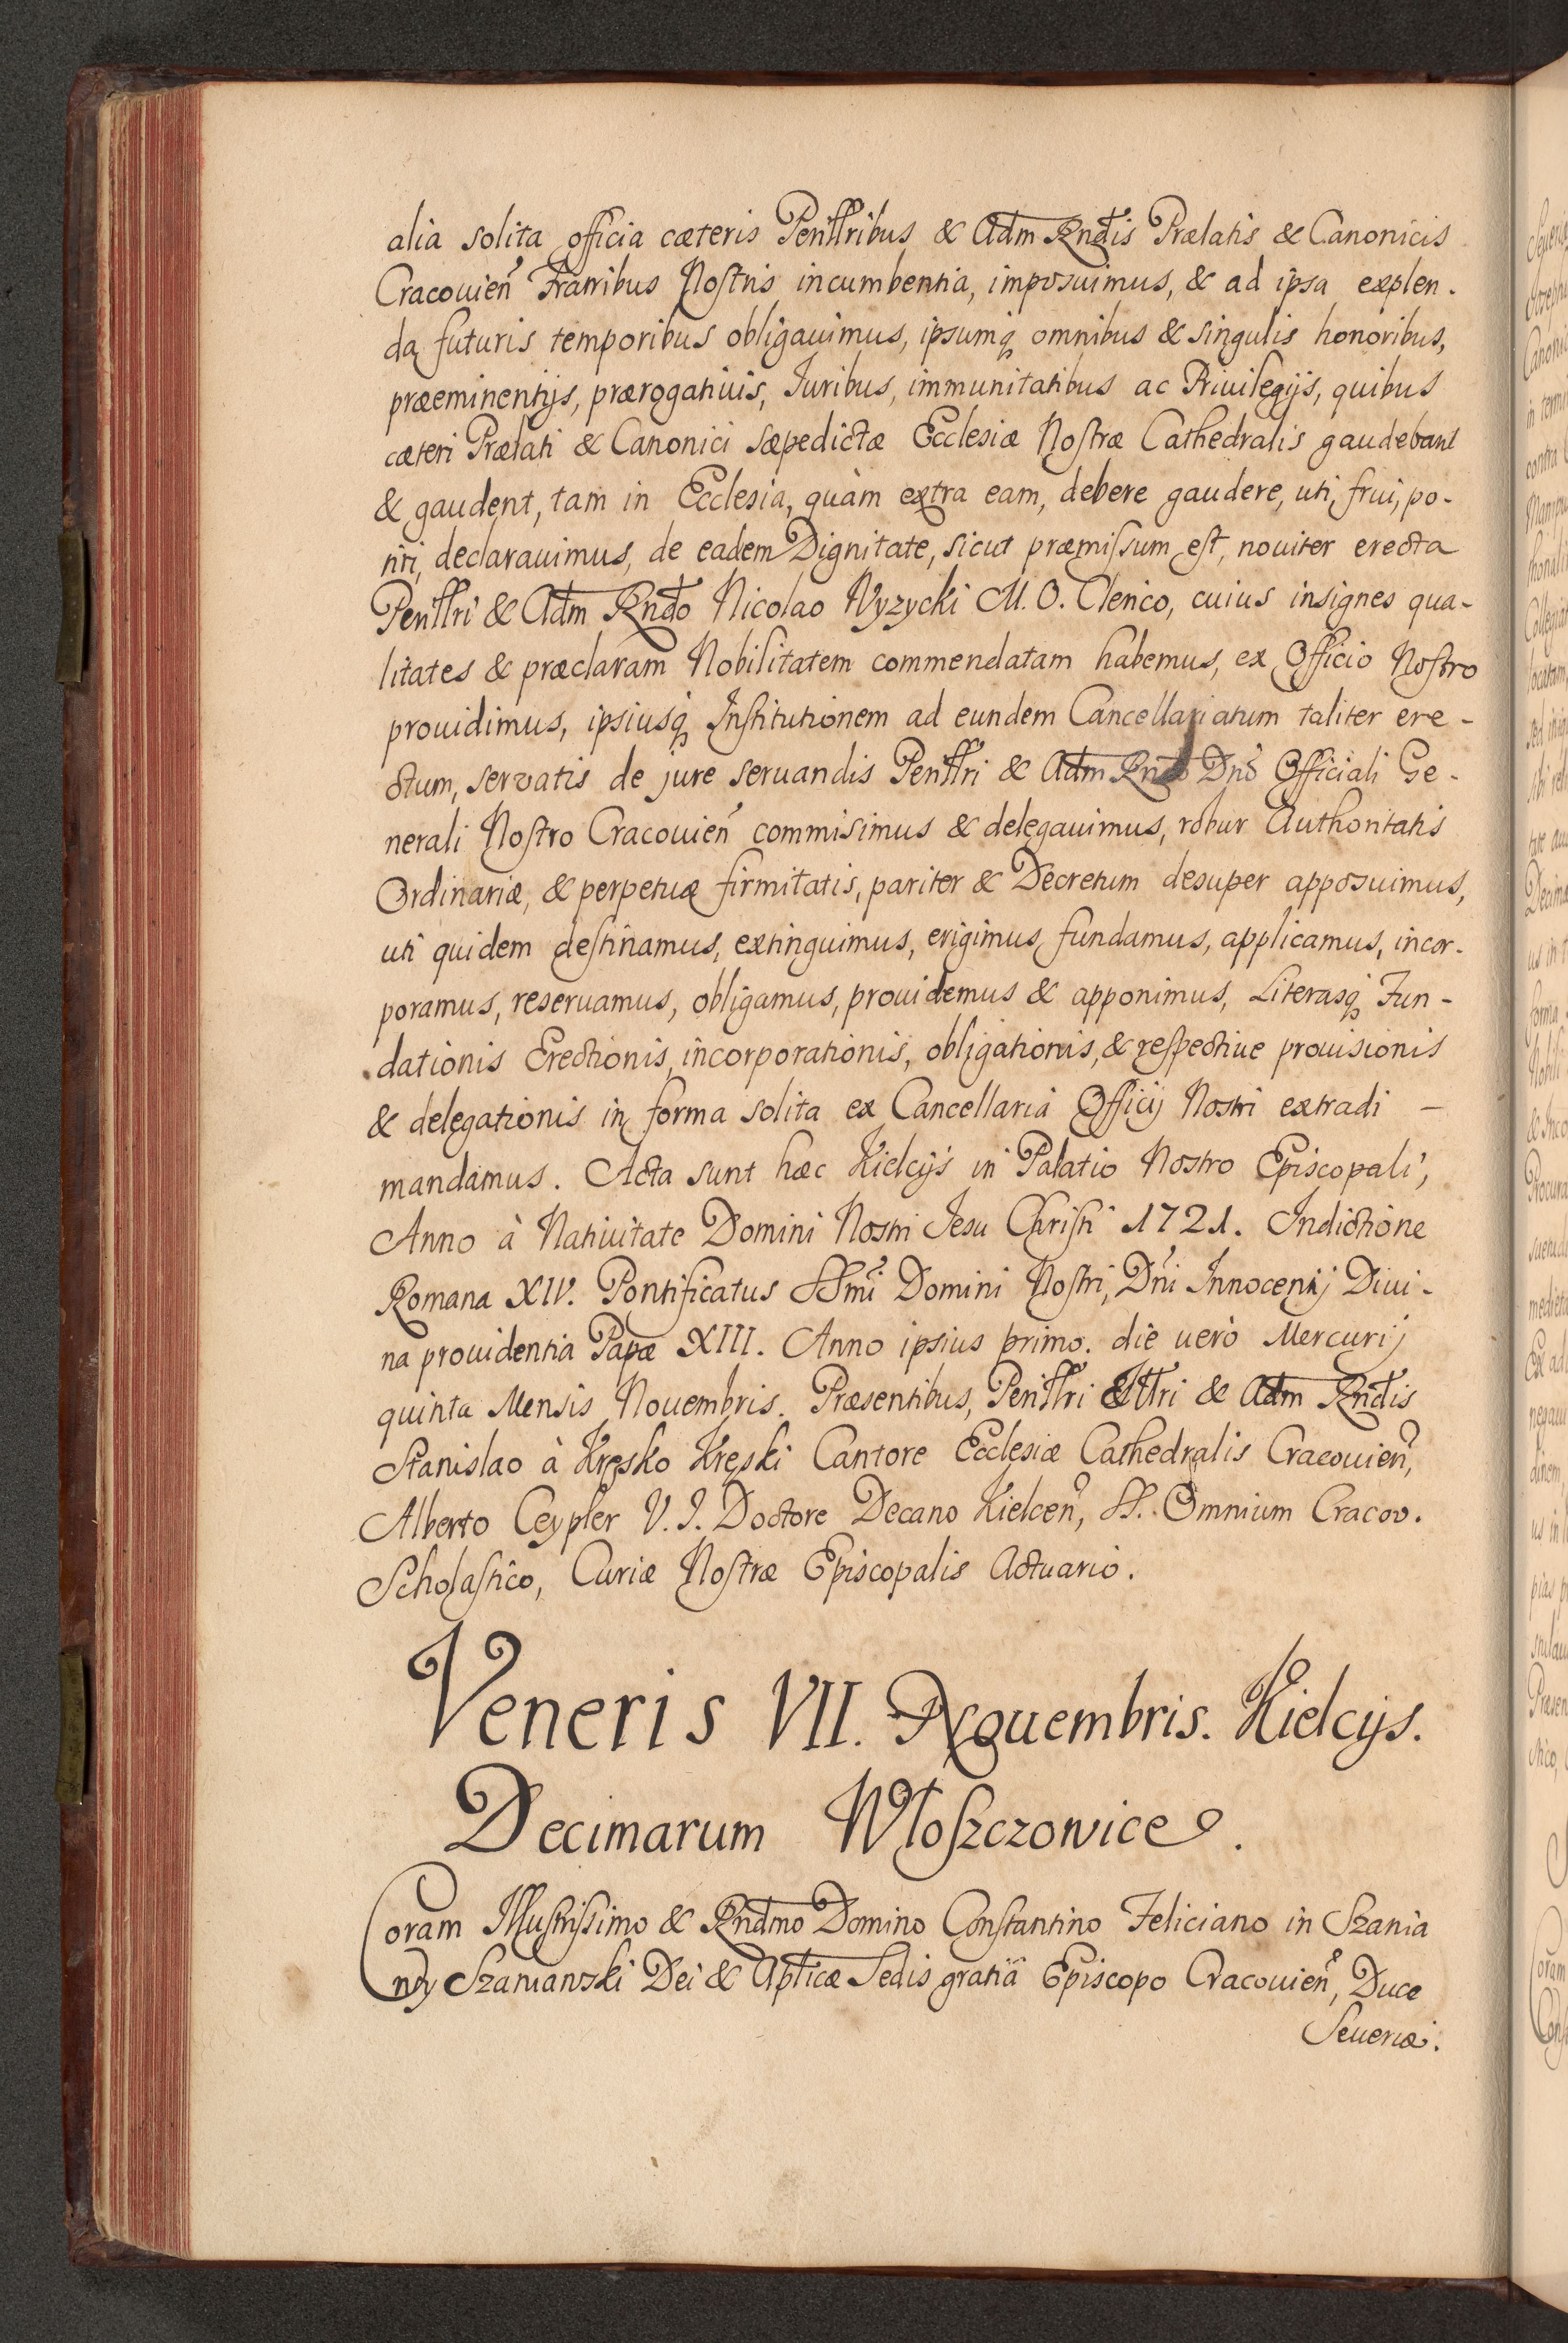 alia solita officia cæteris Perillribus & Adm Rndis Prælatis & Canonicis
Cracouien̄ Fratribus Nostris incumbentia, imposuimus, & ad ipsa explen-
da futuris temporibus obligauimus, ipsumq̨ omnibus & singulis honoribus,
præeminentijs, prærogatiuis, Iuribus, immunitatibus ac Priuilegijs, quibus
cæteri Prælati & Canonici sæpedictæ Ecclesiæ Nostræ Cathedralis gaudebant
& gaudent, tam in Ecclesia, quàm extra eam, debere gaudere, uti, frui, po-
tiri, declarauimus, de eadem Dignitate, sicut præmissum est, nouiter erecta
Perillri & Adm Rndo Nicolao Wyzycki M. O. Clerico, cuius insignes qua-
litates & præclaram Nobilitatem commendatam habemus, ex Officio Nostro
prouidimus, ipsiusq̨ Institutionem ad eundem Cancellariatum taliter ere-
ctum, servatis de jure seruandis Perillri & Adm Rndo Dno Officiali Ge-
nerali Nostro Cracouien̄ commisimus & delegauimus, robur Authoritatis
Ordinariæ, & perpetuæ firmitatis, pariter & Decretum desuper apposuimus,
uti quidem destinamus, extinguimus, erigimus, fundamus, applicamus, incor-
poramus, reseruamus, obligamus, prouidemus & apponimus, Literasq̨ Fun-
dationis Erectionis, incorporationis, obligationis, & respectiue prouisionis
& delegationis in forma solita ex Cancellaria Officij Nostri extradi —
mandamus. Acta sunt hæc Kielcijs in Palatio Nostro Episcopali,
Anno à Natiuitate Domini Nostri Jesu Christi 1721. Indictione
Romana XIV. Pontificatus SSmi Domini Nostri, Dni Innocentij Diui-
na prouidentia Papæ XIII. Anno ipsius primo. die uerò Mercurij
quinta Mensis Nouembris. Præsentibus, Perillri & Adm Rndis
Stanislao à Kręsko Kręski Cantore Ecclesiæ Cathedralis Cracouien̄,
Alberto Ceypler V. J. Doctore Decano Kielcen̄, SS. Omnium Cracov.
Scholastico, Curiæ Nostræ Episcopalis Actuario.
Veneris VII. Nouembris. Kielcijs.
Decimarum Włoszczowice.
Coram Illustrissimo & Rndmo Domino Constantino Feliciano in Szania
wy Szaniawski Dei & Aplicæ Sedis gratiâ Episcopo Cracouien̄, Duce
Seueriæ.